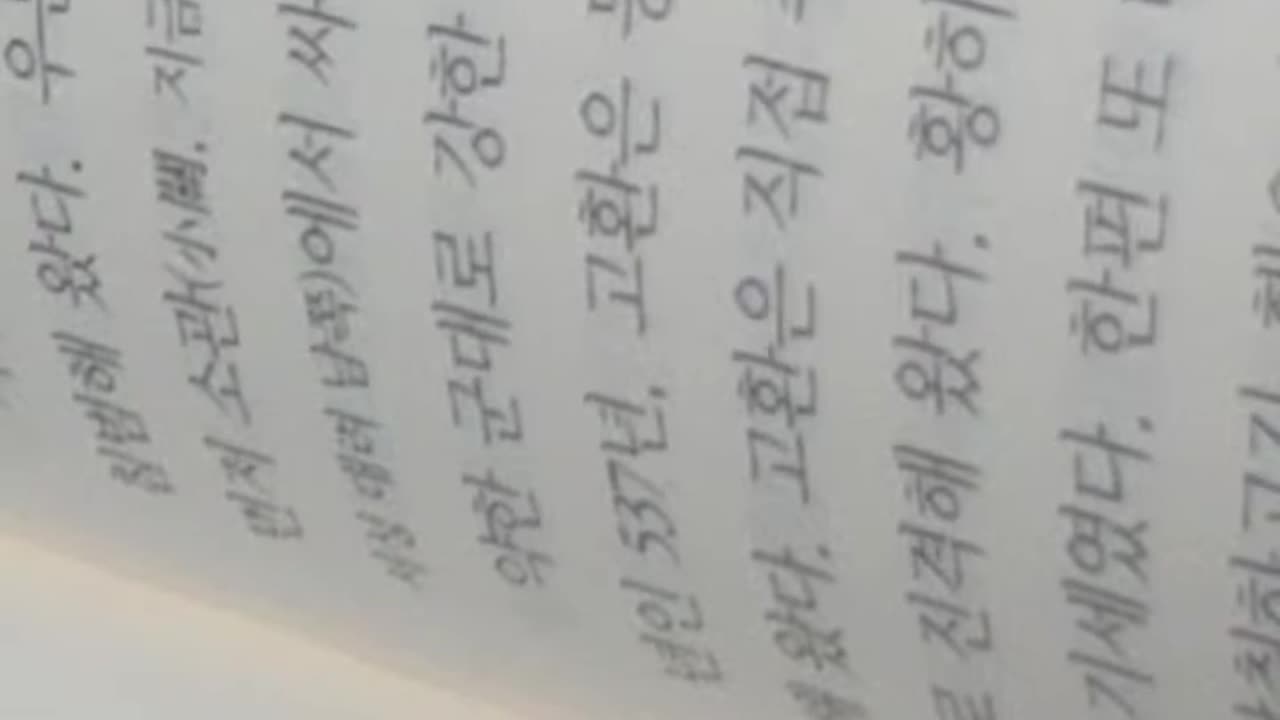 침범해 왔다. 우
먼저 소관(小關. 지금
남쪽)에서 싸
약한 군대로 강한
년인 537년. 고환은
왔다. 고환은 직접
로 진격해 왔다. 황하
기세였다. 한편 또